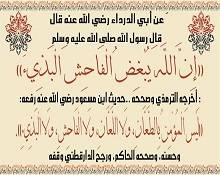 عن أبي الدرداء رضي الله عنه قال
قال رسول الله صلى الله عليه وسلم
((إن الله يبغض الفاحش البذيء))
أخرجه الترمذي وصححه ..حديث ابن مسعود رضي الله عنه رفعه:
((ليس المؤمن بالطعان، ولا اللعان، ولا الفاحش، ولا البذيء))
وحسنه، وصححه الحاكم، ورجح الدارقطني وقفه